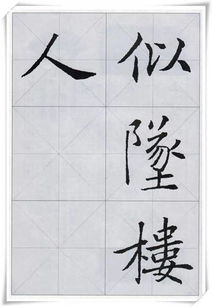 似墜樓
人